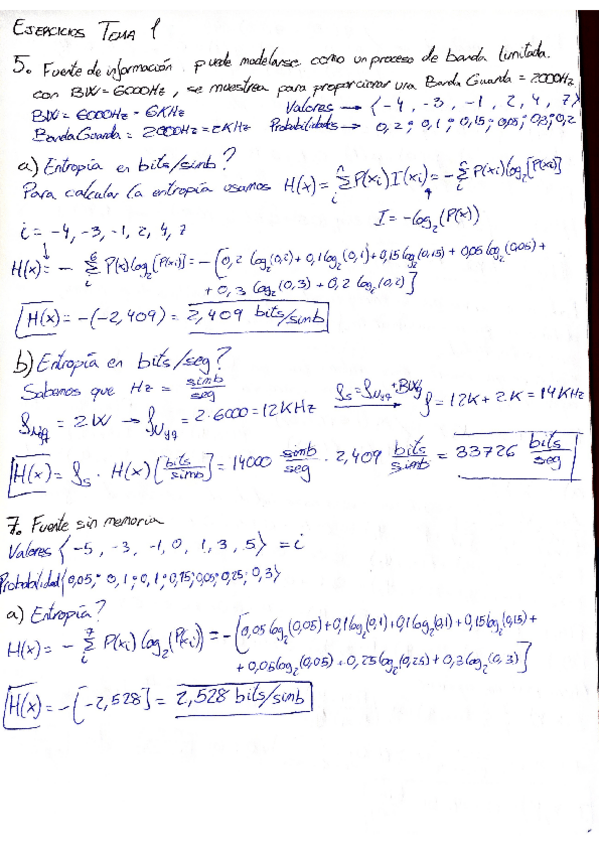 EJERCICIOS TEMA 1
5. Fuente de información puede modelarse como un proceso de banda limitada
con BW = 6000Hz, se muestrea para proporcionar una Banda Guarda = 2000Hz
BW = 6000Hz = 6KHz Valores → {-4, -3, -1, 2, 4, 7}
Banda Guarda = 2000Hz = 2KHz Probabilidades → 0,2; 0,1; 0,15; 0,05; 0,3; 0,2
a) Entropía en bits/simb?
Para calcular la entropia usamos H(x) = Σ P(xi) I(xi) = - Σ P(xi) log2 [P(xi)]
I = -log2 (P(x))
i = -4, -3, -1, 2, 4, 7
H(x) = - Σ P(x) log2 [P(xi)] = -[0,2 log2(0,2) + 0,1 log2(0,1) + 0,15 log2(0,15) + 0,05 log2(0,05) +
+ 0,3 log2(0,3) + 0,2 log2(0,2)]
H(x) = -(-2,409) = 2,409 bits/simb
b) Entropía en bits/seg?
Sabemos que Hz = simb/seg
fNyq = 2W → fNyq = 2·6000 = 12KHz fs = fNyq + BWg → f = 12K + 2K = 14KHz
H(x) = fs · H(x) [bits/simb] = 14000 simb/seg · 2,409 bits/simb = 33726 bits/seg
7. Fuente sin memoria
Valores {-5, -3, -1, 0, 1, 3, 5} = i
Probabilidad {0,05; 0,1; 0,1; 0,15; 0,05; 0,25; 0,3}
a) Entropía?
H(x) = - Σ P(xi) log2 (P(xi)) = -[0,05 log2(0,05) + 0,1 log2(0,1) + 0,1 log2(0,1) + 0,15 log2(0,15) +
+ 0,05 log2(0,05) + 0,25 log2(0,25) + 0,3 log2(0,3)]
H(x) = -[-2,528] = 2,528 bits/simb